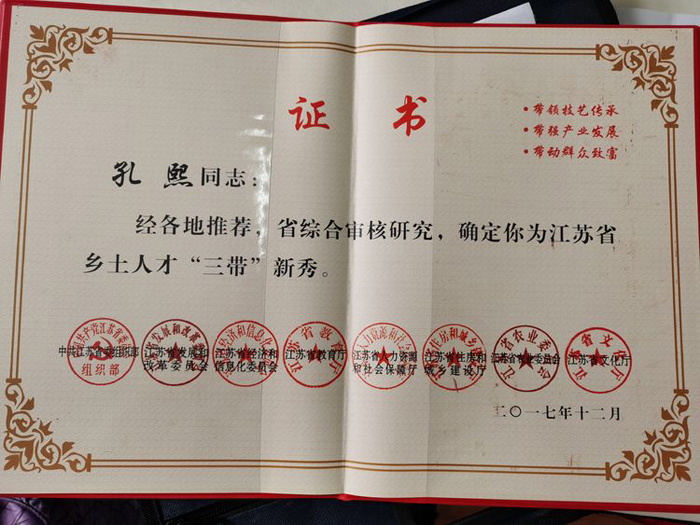 证 书
·带领技艺传承
·带强产业发展
·带动群众致富
孔 熙同志：
经各地推荐，省综合审核研究，确定你为江苏省
乡土人才“三带”新秀。
中共江苏省委组织部
组织部
江苏省发展和
改革委员会
江苏省经济和
信息化委员会
江苏省教育厅
江苏省人力资源
和社会保障厅
江苏省住房和
城乡建设厅
江苏省农业委员会
江苏省文化厅
二〇一七年十二月